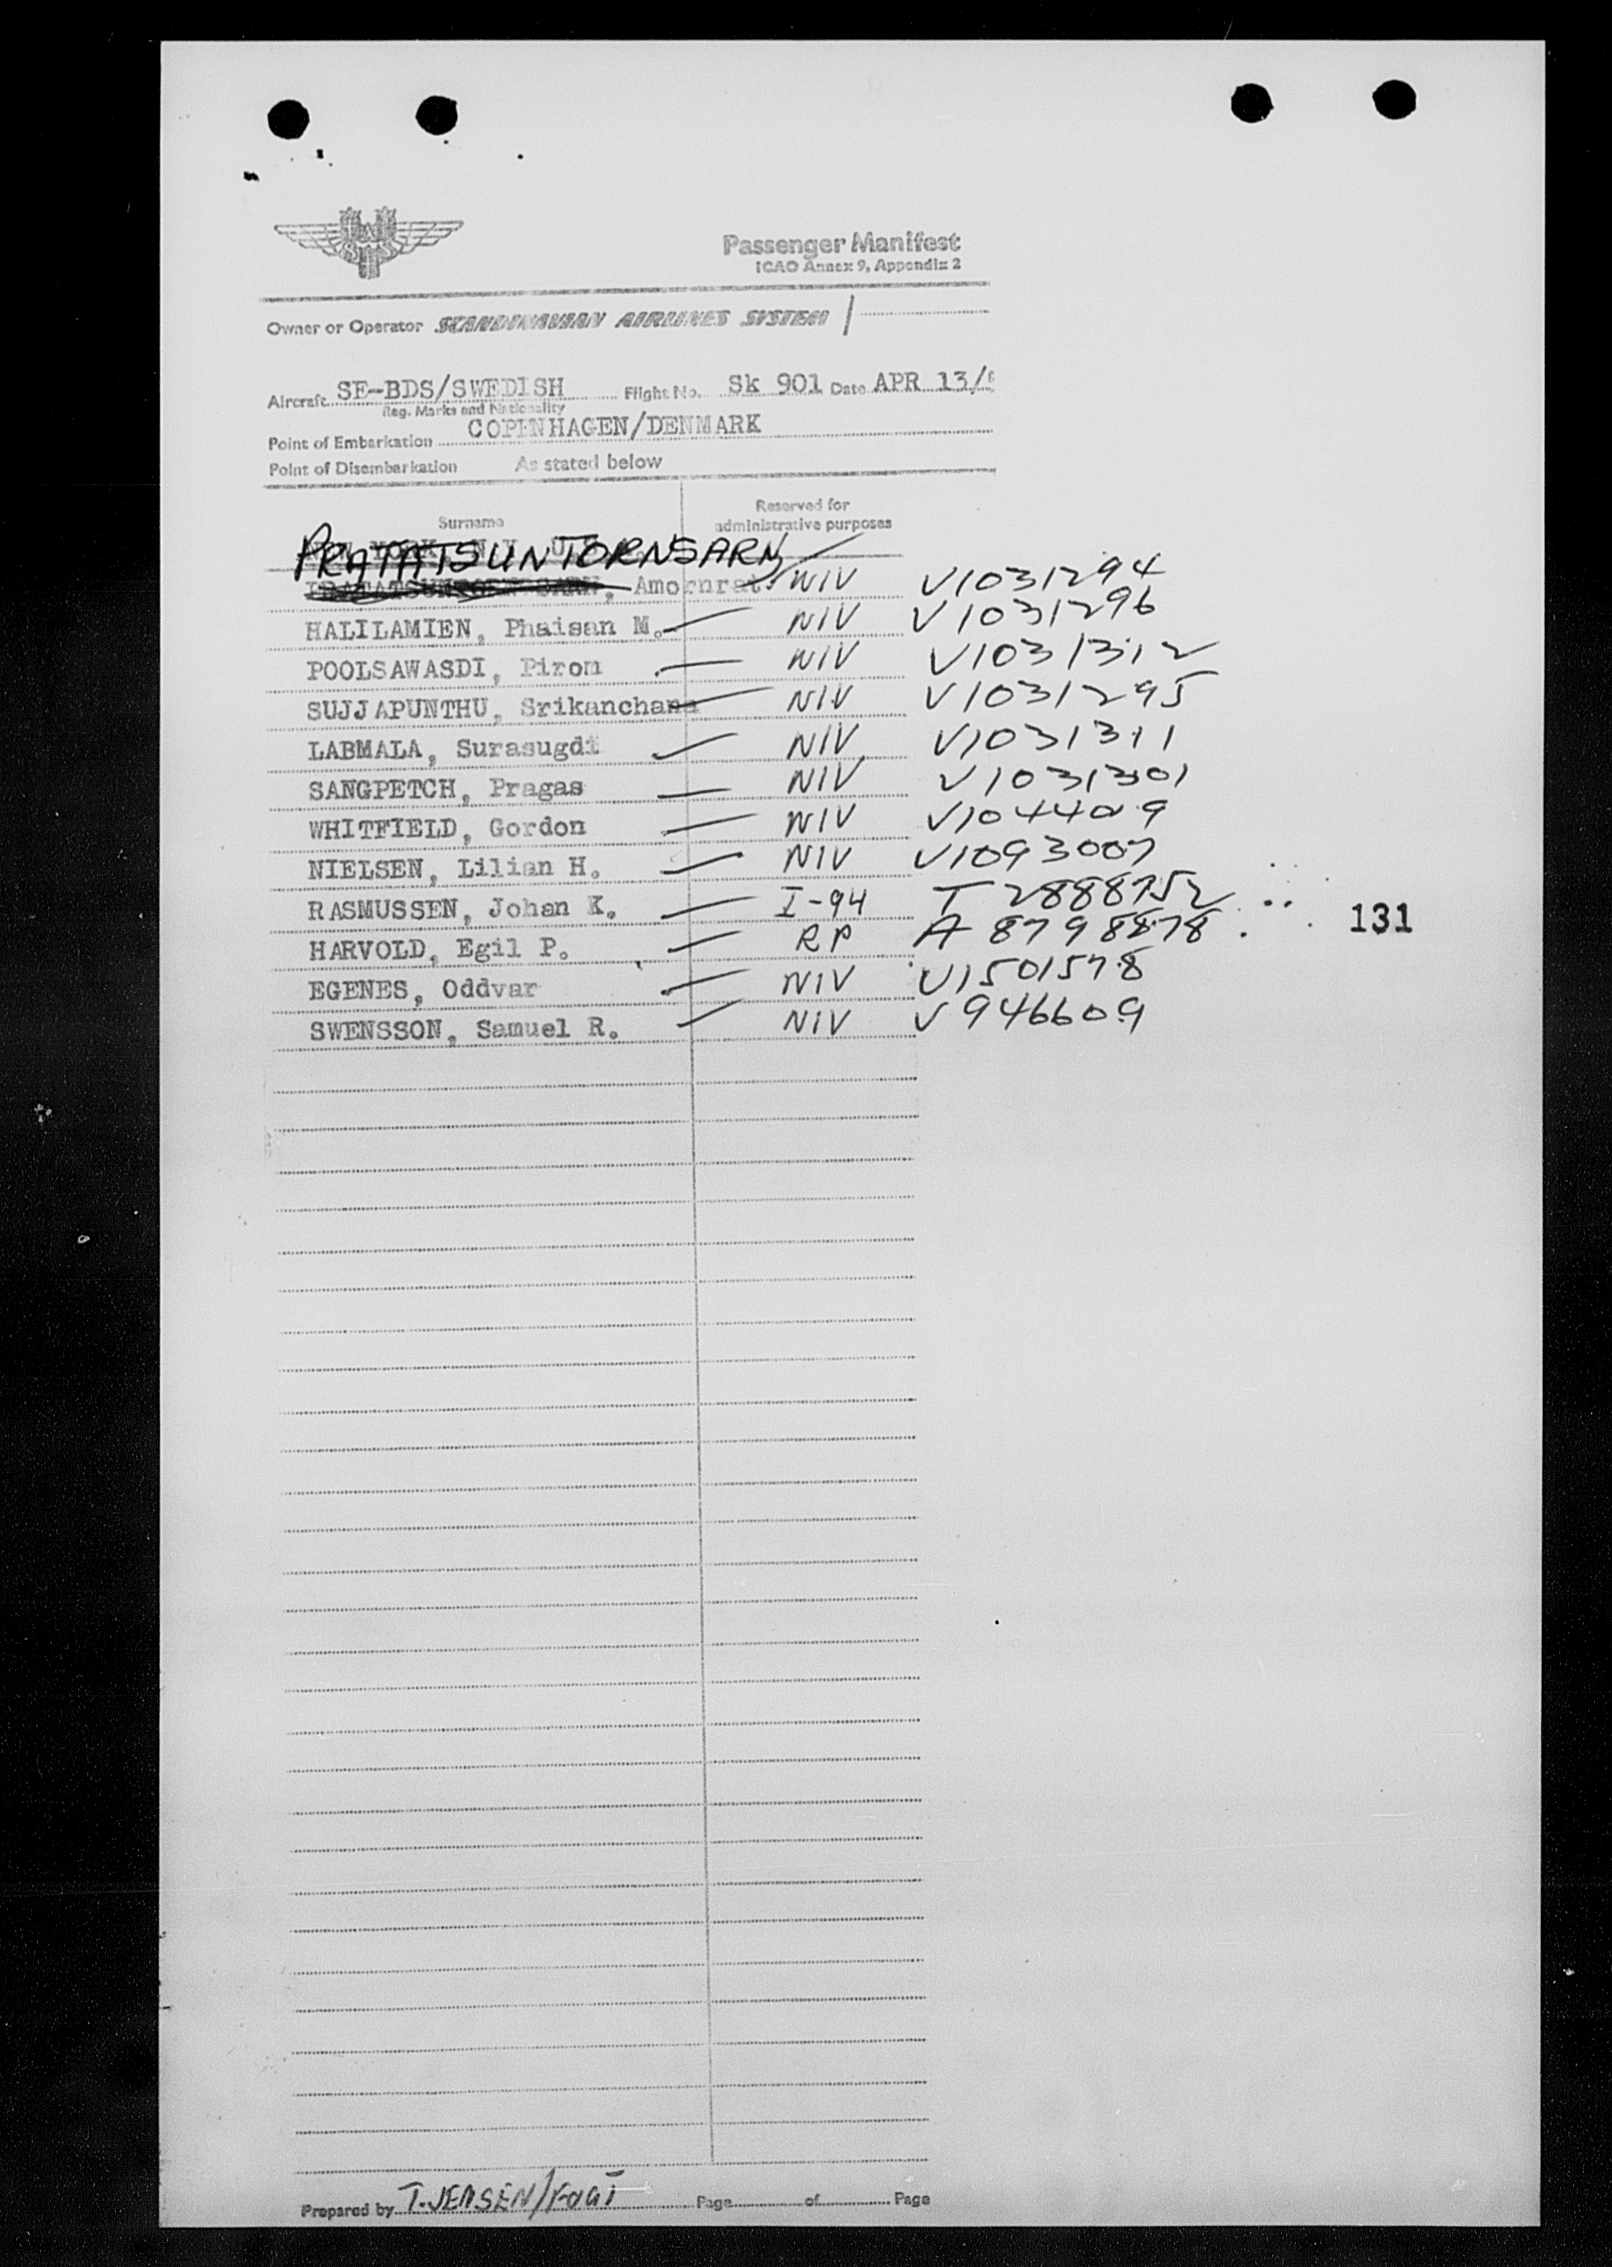 SAS
Passenger Manifest
ICAO Annex 9, Appendix 2
Owner or Operator SCANDINAVIAN AIRLINES SYSTEM
Aircraft SE-BDS/SWEDISH Flight No. Sk 901 Date APR 13/
Reg. Marks and Nationality
Point of Embarkation COPENHAGEN/DENMARK
Point of Disembarkation As stated below
Reserved for
Surname administrative purposes
PRATATSUNTORNSARN
Amornrat NIV V1031294
HALILAMIEN, Phaisan M. NIV V1031296
POOLSAWASDI, Pirom NIV V1031312
SUJJAPUNTHU, Srikanchana NIV V1031295
LABMALA, Surasugdi NIV V1031311
SANGPETCH, Pragas NIV V1031301
WHITFIELD, Gordon NIV
NIELSEN, Lilian H. NIV V1093007
RASMUSSEN, Johan K. I-94 T 2888752
HARVOLD, Egil P. RP A 8798878
131
EGENES, Oddvar NIV V1501578
SWENSSON, Samuel R. NIV V946609
Prepared by T. JENSEN/ Page of Page